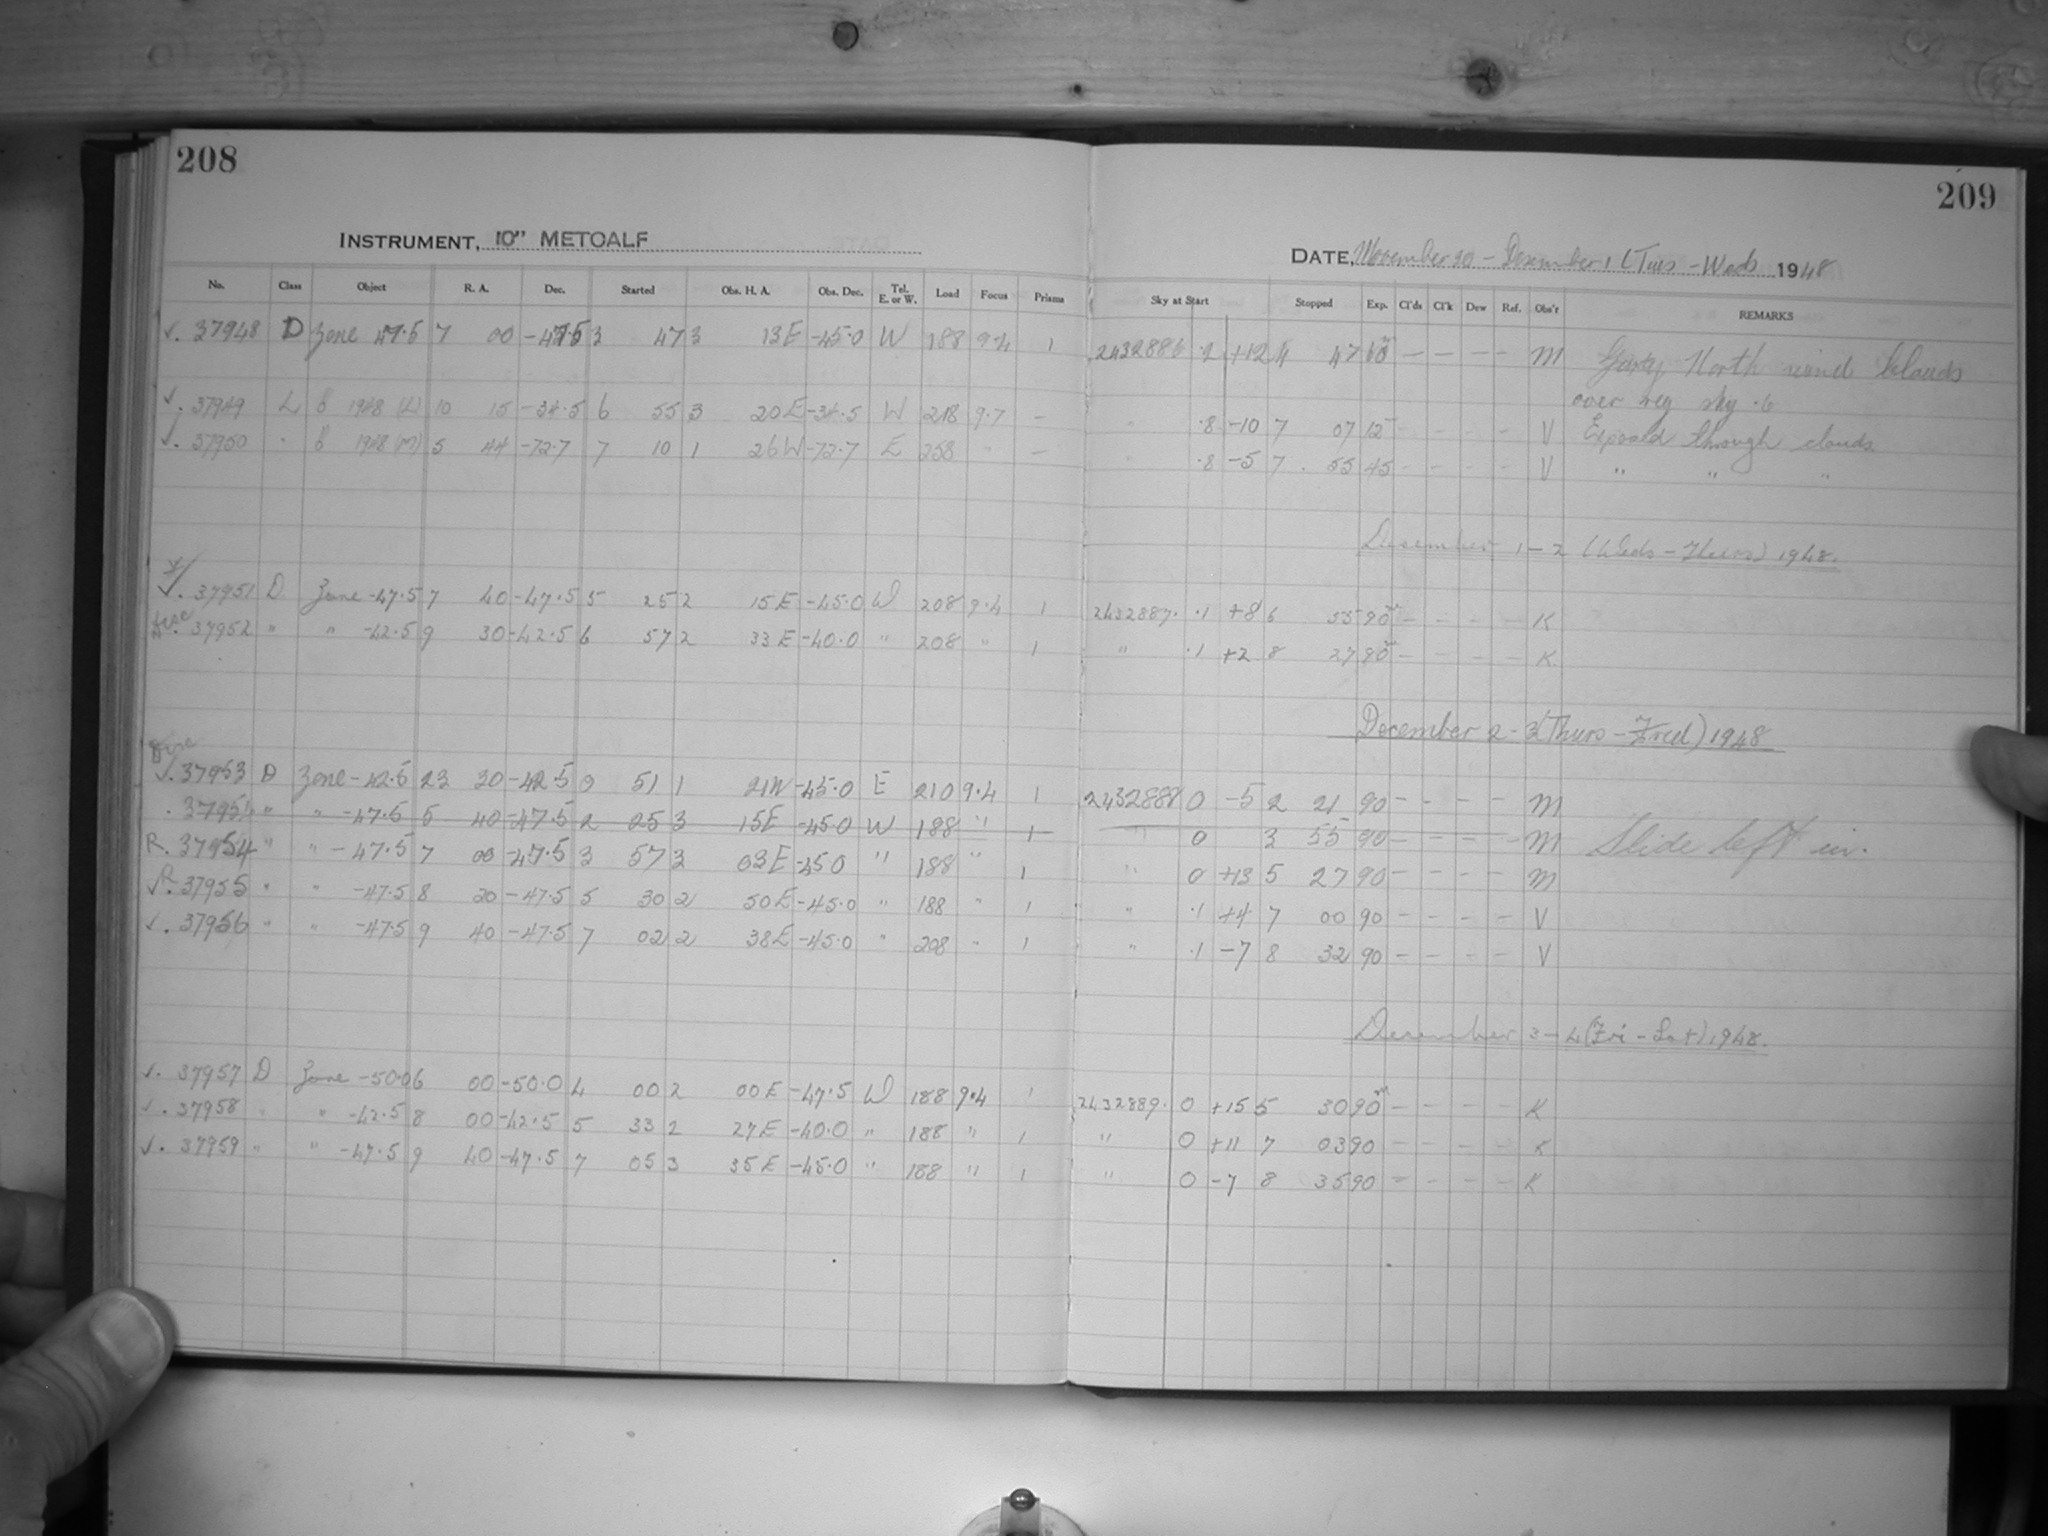 208
209
INSTRUMENT, 10" METCALF
DATE, November 30 - December 1 (Tues - Weds 1948
No. Class Object R. A. Dec. Started Obs. H. A. Obs. Dec. Tel. E. or W. Load Focus Prisms Sky at Start Stopped Exp. Cl'ds Cl'k Dew Ref. Obs'r REMARKS
√. 37948 D Zone 47.5 7 00 -47.5 3 47 3 13E -45.0 W 188 9.4 1 2432886 .2 +12 4 47 60 - - - - M North wind Clouds
over sky .6
√. 37949 L 1948 (L) 10 15 -34.5 6 55 3 20E -34.5 W 218 9.7 - " .8 -10 7 07 12 - - - - V Exposed through clouds
√. 37950 " 1948 (m) 5 44 -72.7 7 10 1 26W -72.7 E 258 " - " .8 -5 7 55 45 - - - - V " " "
December 1-2 (Weds - Thurs) 1948.
√. 37951 D Zone -47.5 7 40 -47.5 5 25 2 15E -45.0 W 208 9.4 1 2432887. .1 +8 6 55 90 - - - - K
37952 " " -42.5 9 30 -42.5 6 57 2 33E -40.0 " 208 " 1 " .1 +2 8 27 90 - - - - K
December 2-3 (Thurs - Fried) 1948
√. 37953 D Zone -42.5 23 30 -42.5 0 51 1 21W -45.0 E 210 9.4 1 2432888 0 -5 2 21 90 - - - - M
. 37954 " " -47.5 5 40 -47.5 2 25 3 15E -45.0 W 188 " 1 " 0 3 55 90 - - - - M Slide left in.
R. 37954 " " -47.5 7 00 -47.5 3 57 3 03E -45.0 " 188 " 1 " 0 +13 5 27 90 - - - - M
R √. 37955 " " -47.5 8 20 -47.5 5 30 2 50E -45.0 " 188 " 1 " .1 +4 7 00 90 - - - - V
√. 37956 " " -47.5 9 40 -47.5 7 02 2 38E -45.0 " 208 " 1 " .1 -7 8 32 90 - - - - V
December 3-4 (Fri - Sat) 1948.
√. 37957 D Zone -50.0 6 00 -50.0 4 00 2 00E -47.5 W 188 9.4 1 2432889. 0 +15 5 30 90m - - - - K
√. 37958 " " -42.5 8 00 -42.5 5 33 2 27E -40.0 " 188 " 1 " 0 +11 7 03 90 - - - - K
√. 37959 " " -47.5 9 40 -47.5 7 05 3 35E -45.0 " 188 " 1 " 0 -7 8 35 90 - - - - K